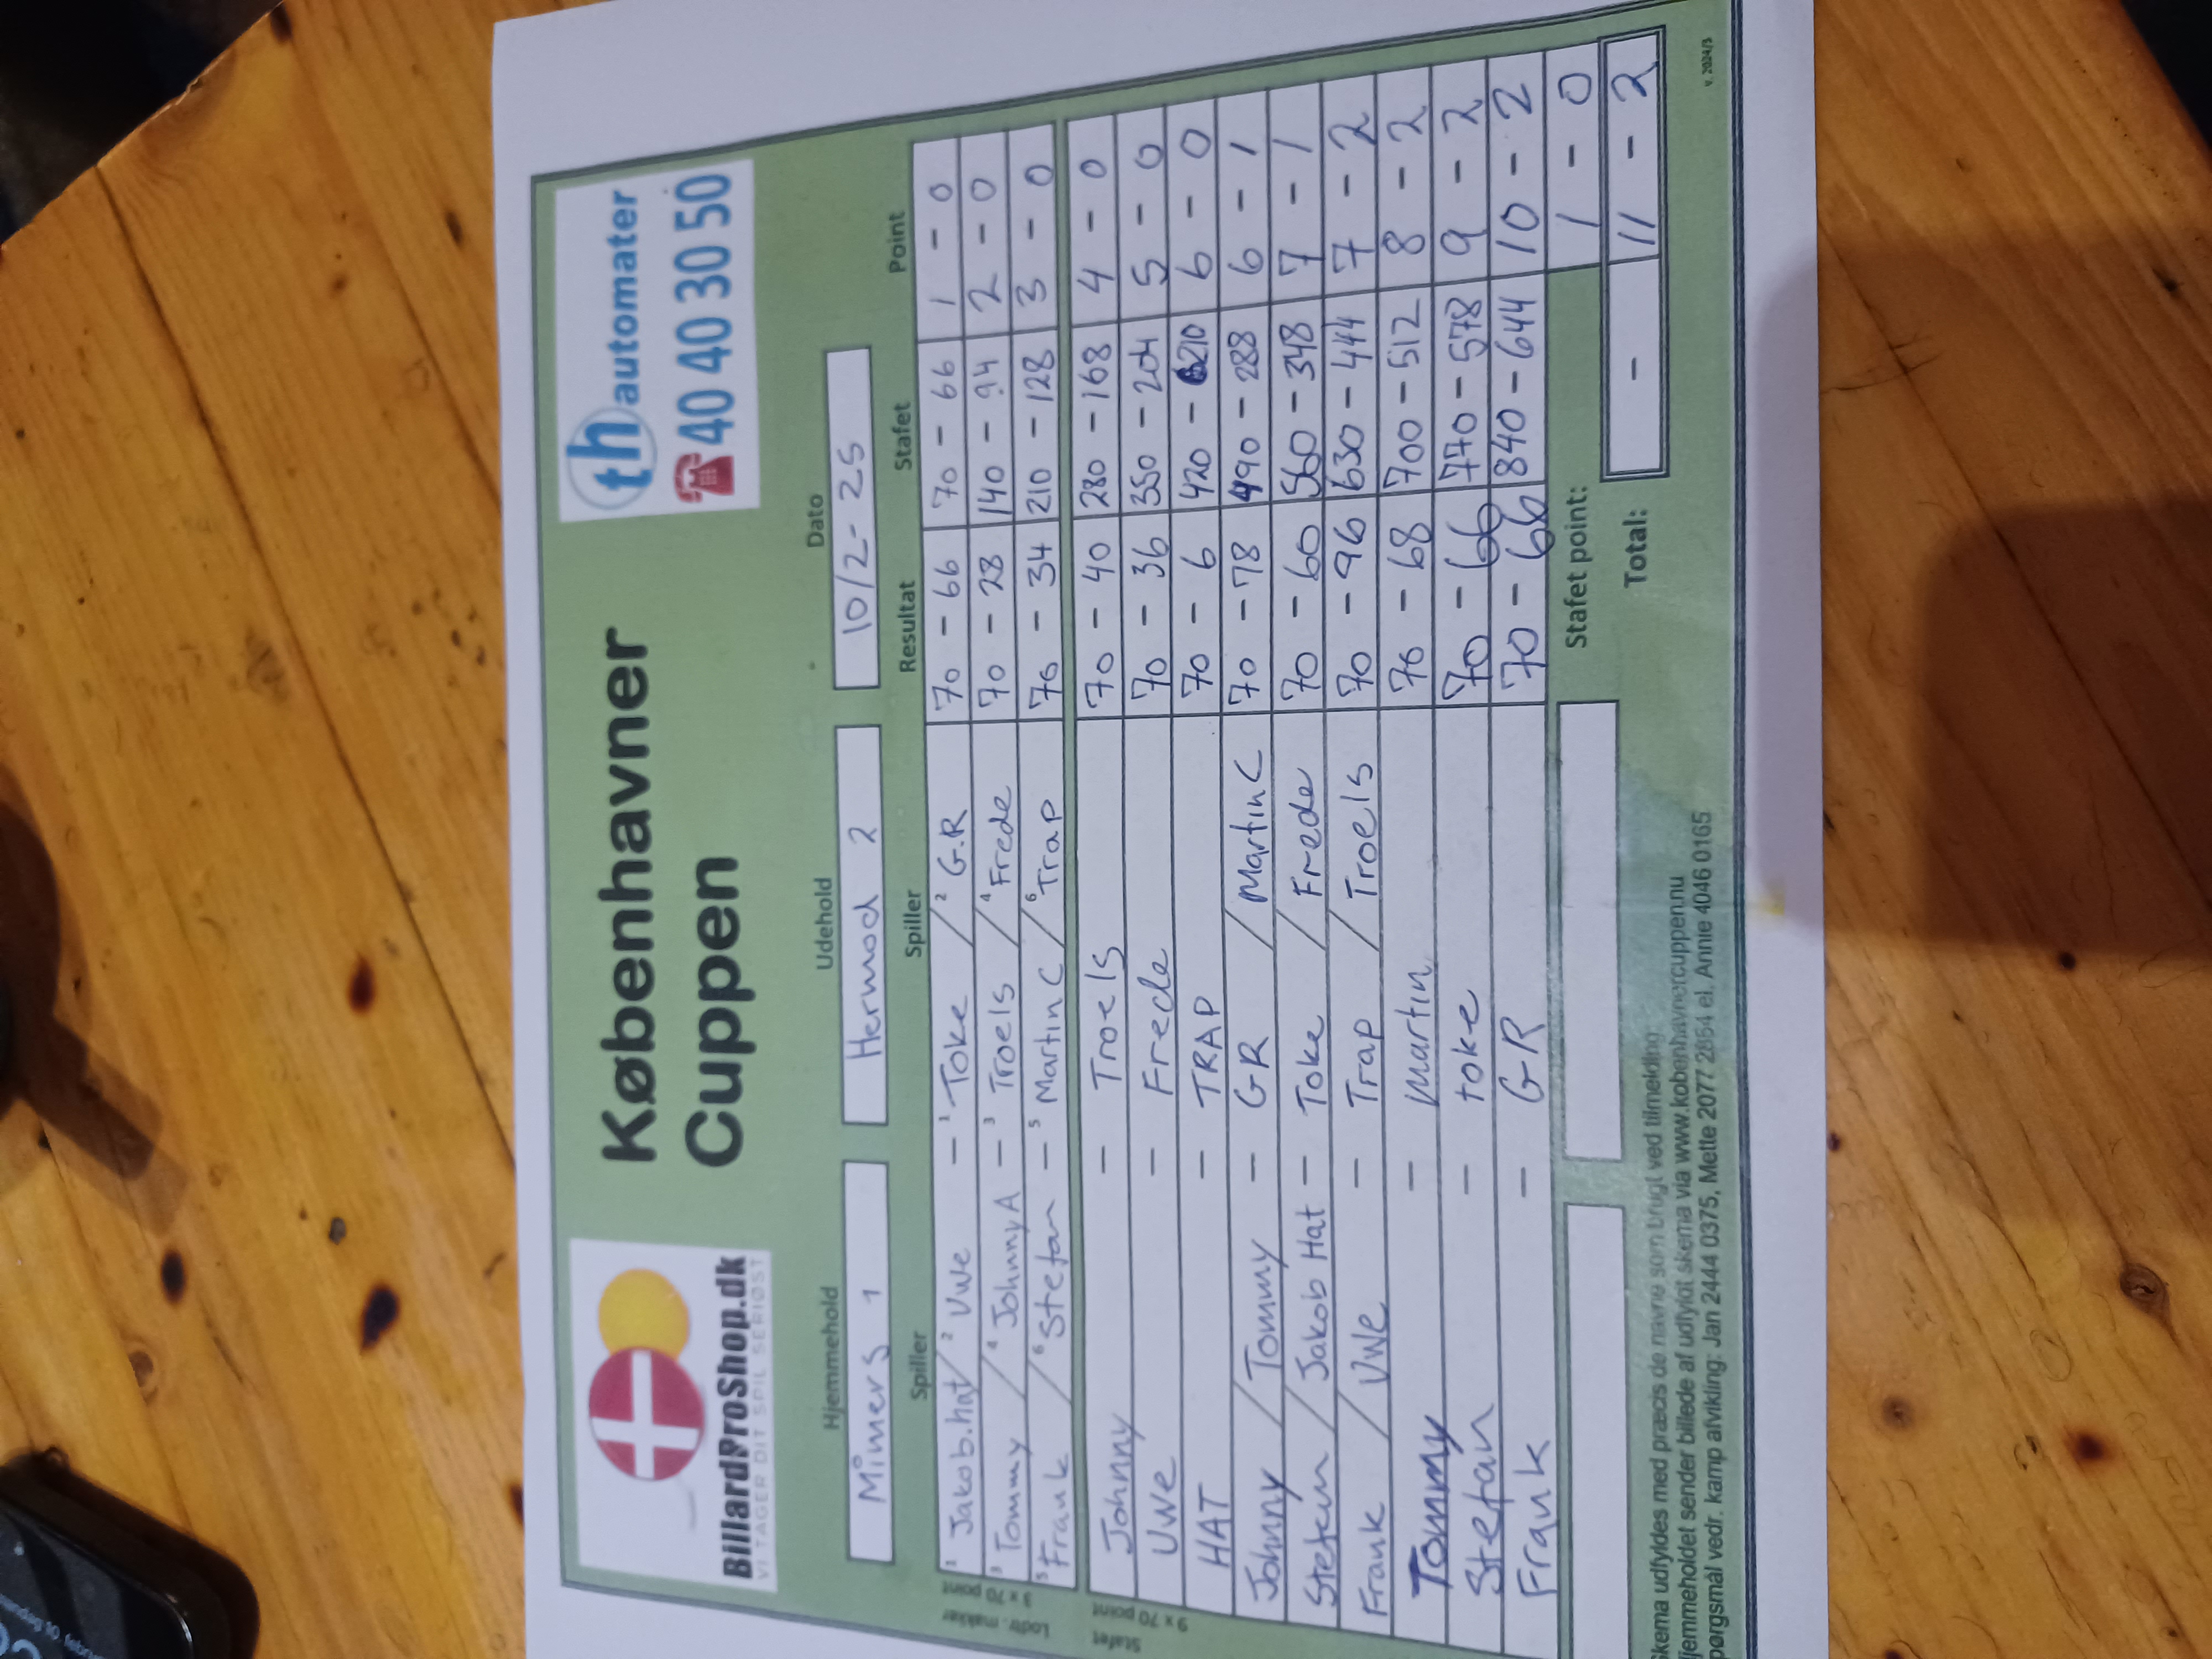 BilliardProShop.dk
VI TAGER DIT SPIL SERIØST
Københavner
Cuppen
th automater
40 40 30 50
Hjemmehold Udehold Dato
Mimers 1 Hermod 2 10/2-25
Spiller Spiller Resultat Stafet Point
Lodtr. makker
3 x 70 point
1 Jakob.hat / 2 Uwe - 1 Toke / 2 G.R 70 - 66 70 - 66 1 - 0
3 Tommy / 4 Johnny A - 3 Troels / 4 Frede 70 - 28 140 - 94 2 - 0
5 Frank / 6 Stefan - 5 Martin C / 6 Trap 70 - 34 210 - 128 3 - 0
Stafet
9 x 70 point
Johnny - Troels 70 - 40 280 - 168 4 - 0
Uwe - Frede 70 - 36 350 - 204 5 - 0
HAT - TRAP 70 - 6 420 - 210 6 - 0
Johny / Tommy - GR / Martin C 70 - 78 490 - 288 6 - 1
Stefan / Jakob Hat - Toke / Frede 70 - 60 560 - 348 7 - 1
Frank / Uwe - Trap / Troels 70 - 96 630 - 444 7 - 2
Tommy - Martin 70 - 68 700 - 512 8 - 2
Stefan - toke 70 - 66 770 - 578 9 - 2
Frank - GR 70 - 66 840 - 644 10 - 2
Stafet point: 1 - 0
Total: - 11 - 2
Skema udfyldes med præcis de navne som brugt ved tilmelding
Hjemmeholdet sender billede af udfyldt skema via www.kobenhavnercuppen.nu
pørgsmål vedr. kamp afvikling: Jan 2444 0375, Mette 2077 2864 el. Annie 4046 0165
v. 2024/3